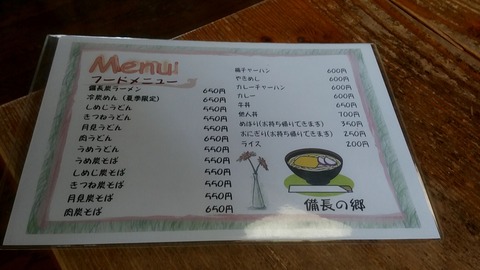 Menu
フードメニュー
備長炭ラーメン 650円
冷炭めん（夏季限定） 650円
しめじうどん 550円
きつねうどん 550円
月見うどん 550円
肉うどん 650円
うめうどん 550円
うめ炭そば 550円
しめじ炭そば 550円
きつね炭そば 550円
月見炭そば 550円
肉炭そば 650円
梅チャーハン 600円
やきめし 600円
カレーチャーハン 600円
カレー 600円
牛丼 650円
他人丼 700円
めはり(お持ち帰りできます) 350円
おにぎり(お持ち帰りできます) 250円
ライス 200円
備長の郷